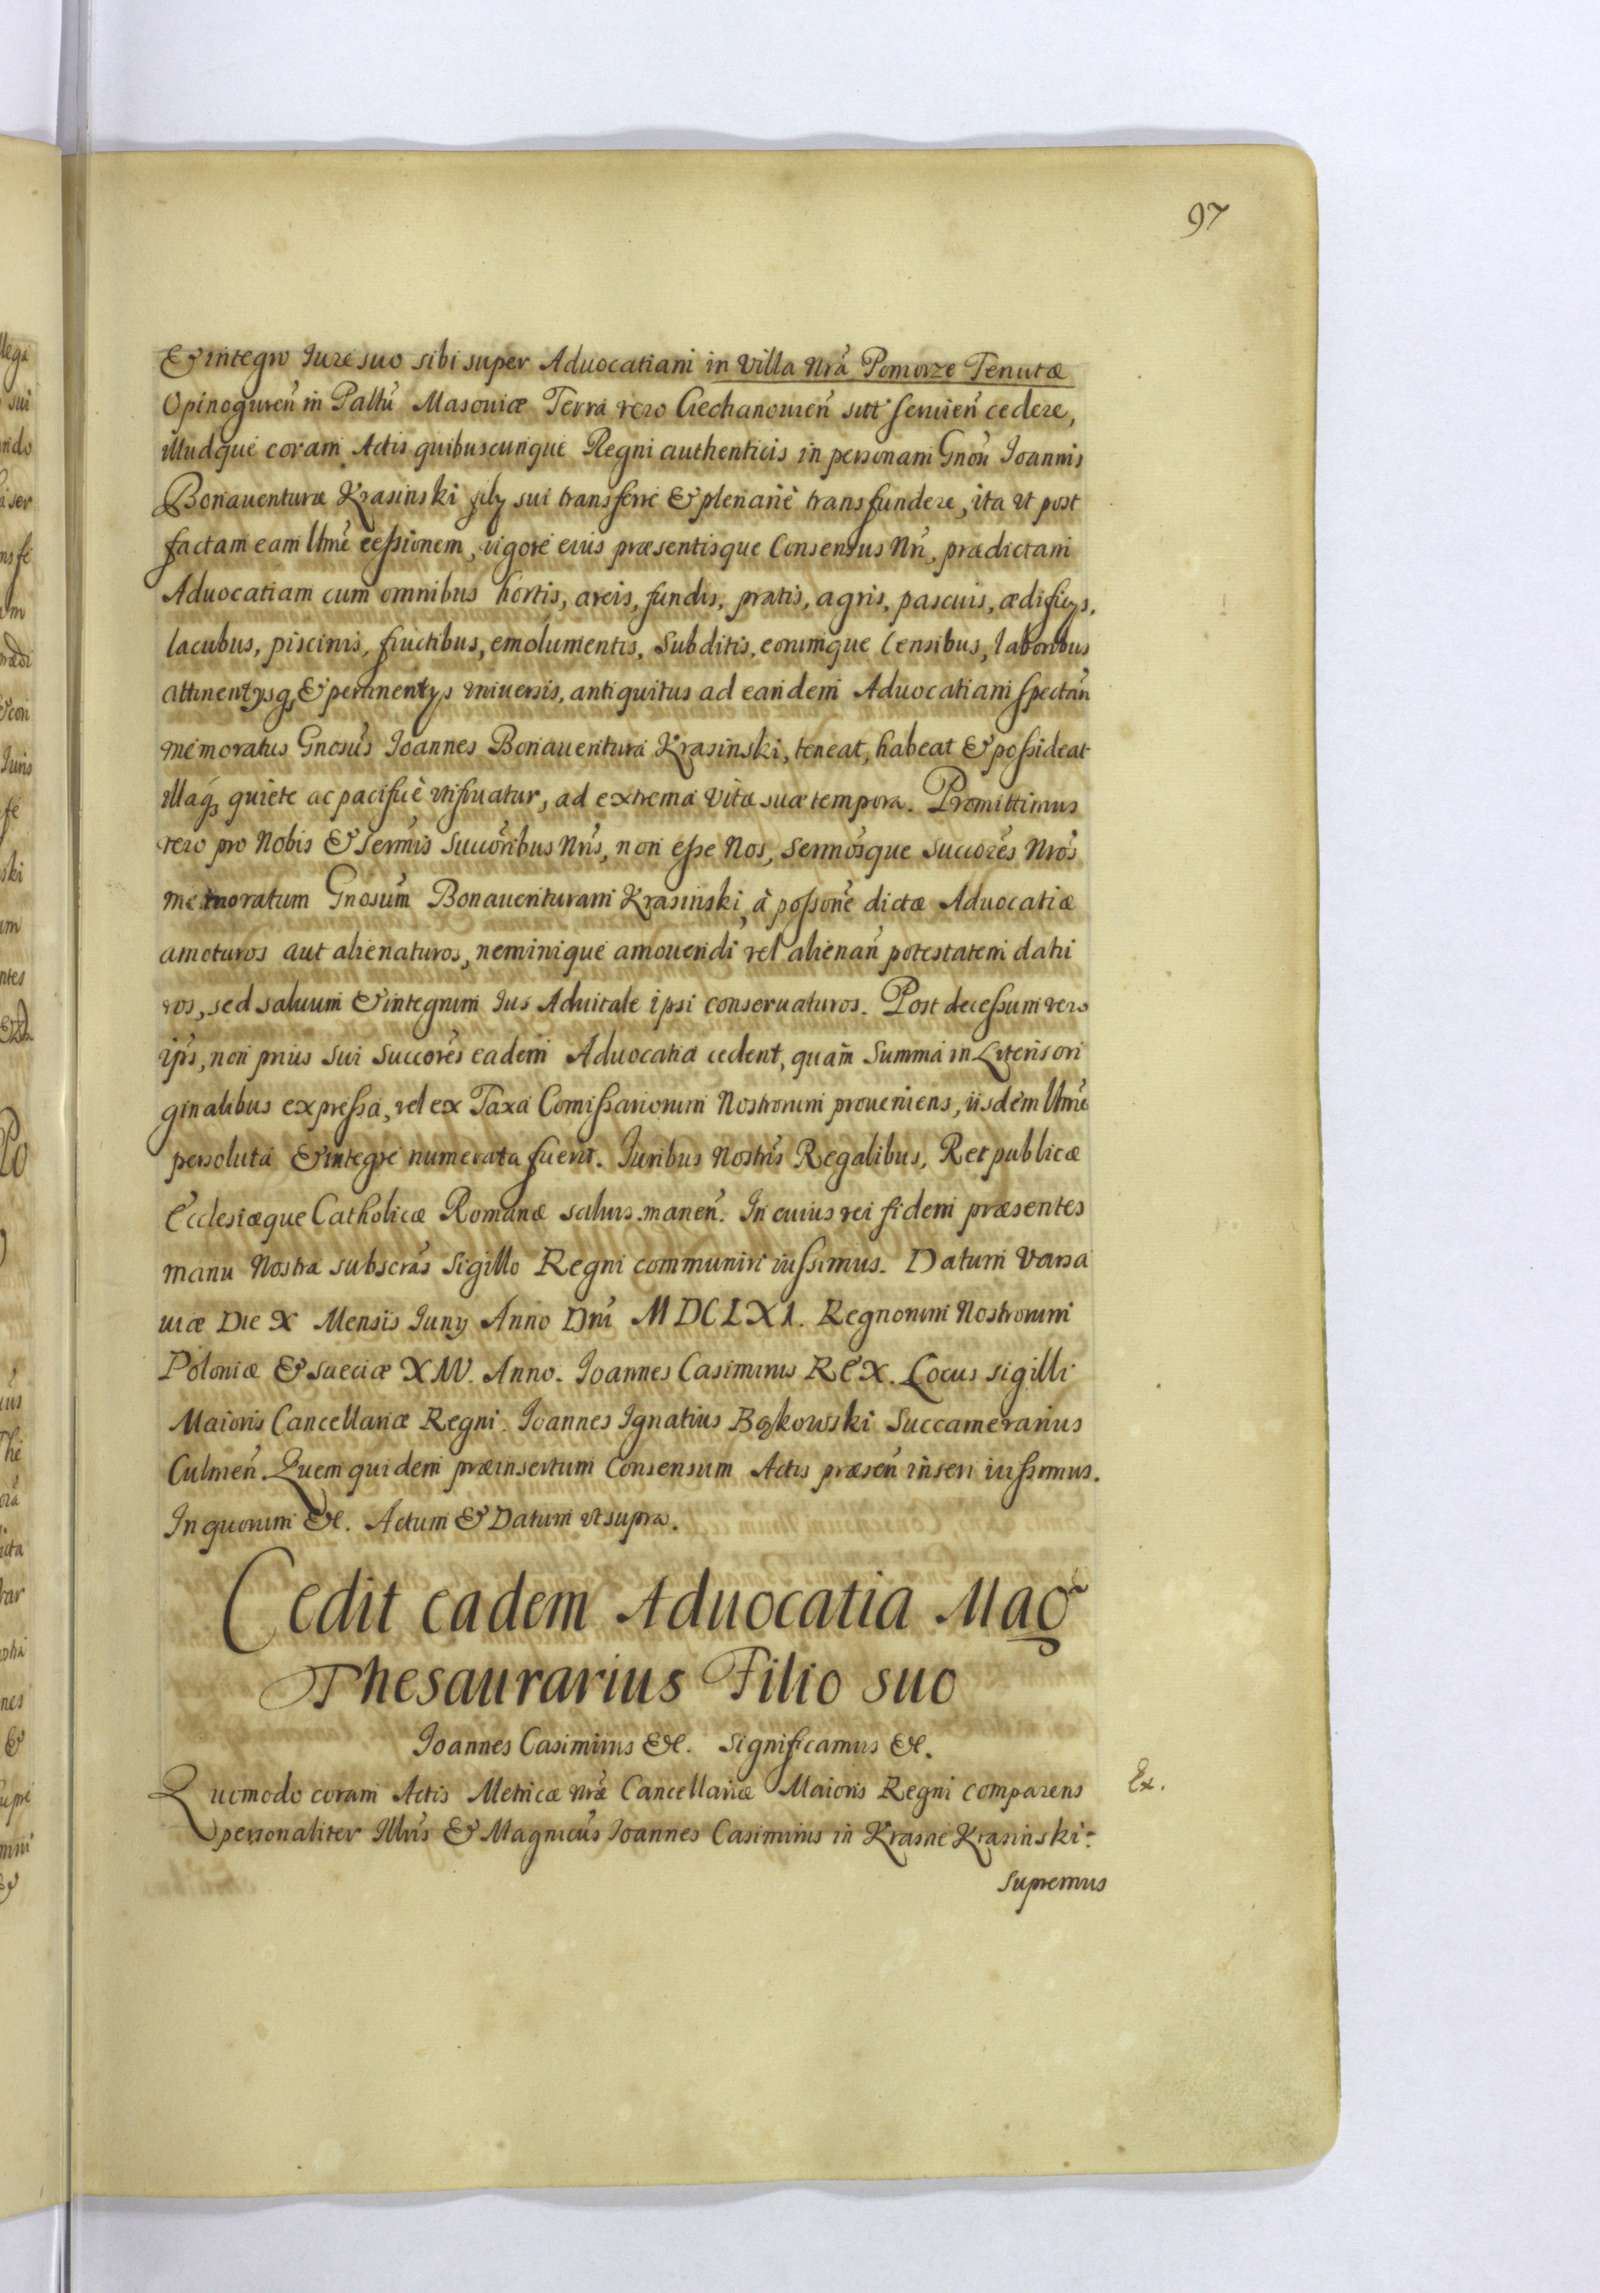 97
& integro Iure suo sibi super Aduocatiam in Villa Nrã Pomorze Tenutæ
Opinogureñ in Palltũ Masouiæ Terra vero Ciechanouieñ sitt seruieñ cedere,
illudque coram Actis quibuscunque Regni authenticis in personam Gnoũ Ioannis
Bonauenturæ Krasinski filij sui transferre & plenariè transfundere, ita vt post
factam eam cessionem, vigore eius præsentisque Consensus Nrĩ, prædictam
Aduocatiam cum omnibus hortis, areis, fundis, pratis, agris, pascuis, ædificijs,
lacubus, piscinis, fructibus, emolumentis, Subditis, eorumque Censibus, laboribus
attinentijsq, & pertinentijs vniuersis, antiquitus ad eandem Aduocatiam spectañ
memoratus Gnosũs Ioannes Bonauentura Krasinski, teneat, habeat & possideat
illaq, quiete ac pacificè vtifruatur, ad extrema vitæ suæ tempora. Promittimus
vero pro Nobis & Sermĩs Succõribus Nrĩs, non esse Nos, Sermõsque Succorẽs Nrõs
memoratum Gnosũm Bonauenturam Krasinski, à possonẽ dictæ Aduocatiæ
amoturos aut alienaturos, neminique amouendi vel alienañ potestatem datu
ros, sed saluum & integrum Ius Aduitale ipsi conseruaturos. Post decessum vero
ipĩs, non prius sui Succorẽs eadem Aduocatia cedent, quam Summa in Literis ori
ginalibus expressa, vel ex Taxa Comissariorum Nostrorum proueniens, iisdem
persoluta & integre numerata fuerit. Iuribus Nostris Regalibus, Reipublicæ
Ecclesiæque Catholicæ Romanæ saluis maneñ. In cuius rei fidem præsentes
manu Nostra subscrãs Sigillo Regni communiri iussimus. Datum Varsa
uiæ Die X Mensis Iunij Anno Dnĩ MDCLXI. Regnorum Nostrorum
Poloniæ & Sueciæ XIII. Anno. Ioannes Casimirus REX. Locus Sigilli
Maioris Cancellariæ Regni. Ioannes Ignatius Bąkowski Succamerarius
Culmeñ. Quem quidem præinsertum Consensum Actis præseñ inseri iussimus.
In quorum &c. Actum & Datum vt supra.
Cedit eadem Aduocatia Mag
Thesaurarius Filio suo
Ioannes Casimirus &c. Significamus &c.
Quomodo coram Actis Metricæ Nræ̃ Cancellariæ Maioris Regni comparens
Ex.
personaliter Illrĩs & Magnicũs Ioannes Casimirus in Krasne Krasinski
Supremus